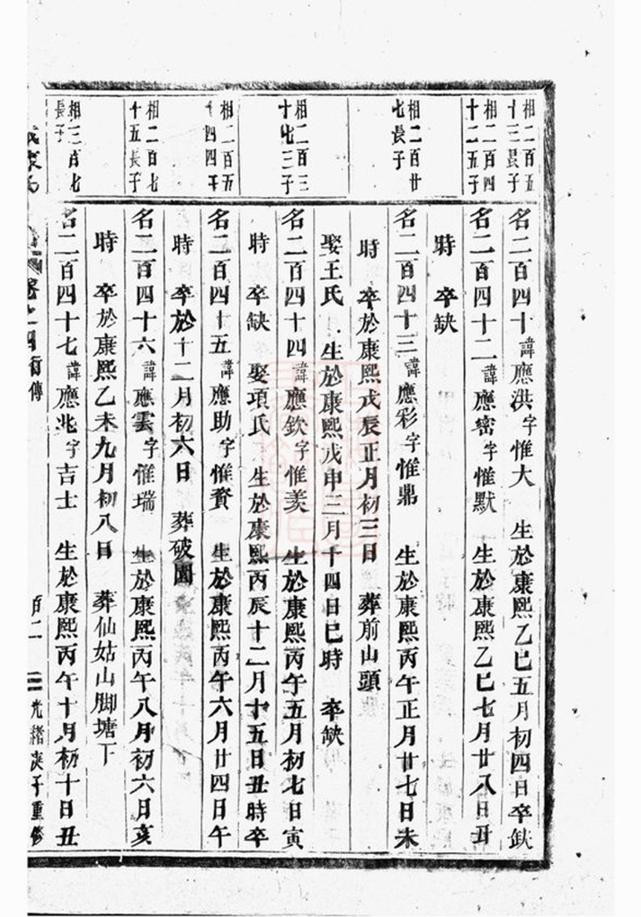 相二百五
十三長子
名二百四十諱應洪字惟大　生於康熙乙巳五月初四日卒缺
相二百四
十二五子
名二百四十二諱應密字惟默　生於康熙乙巳七月廿八日丑
時　卒缺
相二百廿
七長子
名二百四十三諱應彩字惟鼎　生於康熙丙午正月廿七日未
時　卒於康熙戊辰正月初三日　葬前山頭
娶王氏　生於康熙戊申三月十四日巳時　卒缺
相二百三
十七三子
名二百四十四諱應欽字惟美　生於康熙丙午五月初七日寅
時　卒缺　娶項氏　生於康熙丙辰十二月十五日丑時卒
相二百五
十四四子
名二百四十五諱應助字惟賚　生於康熙丙午六月廿四日午
時　卒於十二月初六日　葬破園
相二百七
十五長子
名二百四十六諱應雲字惟瑞　生於康熙丙午八月初六日亥
時　卒於康熙乙未九月初八日　葬仙姑山脚塘下
相三百七
長子
名二百四十七諱應兆字吉士　生於康熙丙午十月初十日丑
行傳　百二　光緒庚子重修